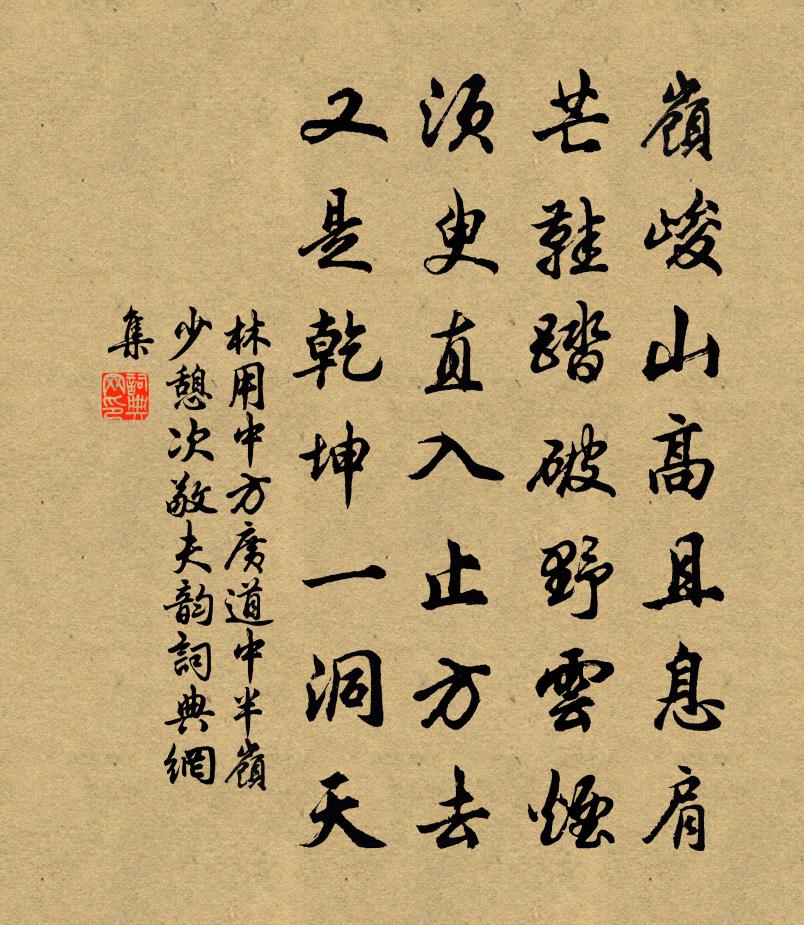 嶺峻山高且息肩
芒鞋踏破野雲煙
須臾直入止方去
又是乾坤一洞天
林用中方廣道中半嶺
少憩次敬夫韵詞典網
集
詞典網印